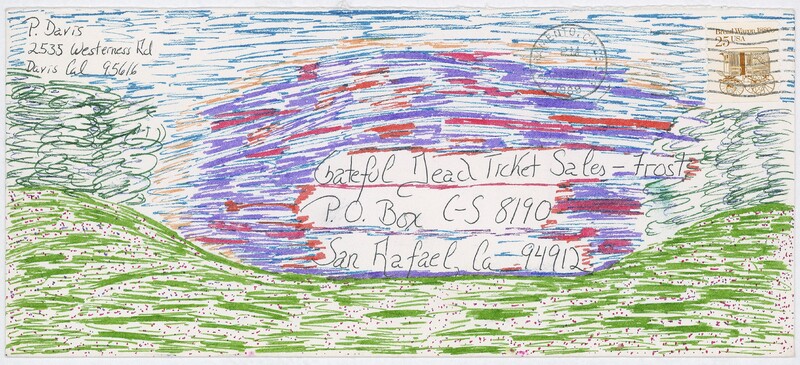 P. Davis
2535 Westerness Rd
Davis Cal 95616
Bread Wagon 1880s
25 USA
Grateful Dead Ticket Sales - Frost
P.O. Box C-S 8190
San Rafael, Ca 94912